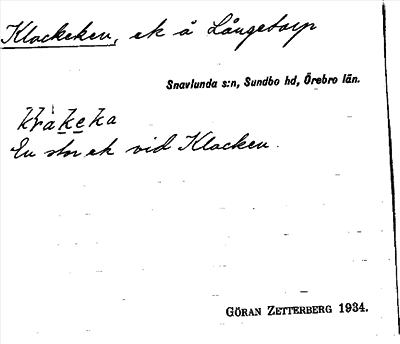 Klockeken, ek å Långetorp
Snavlunda s:n, Sundbo hd, Örebro län.
En stor ek vid Klocken.
GÖRAN ZETTERBERG 1934.